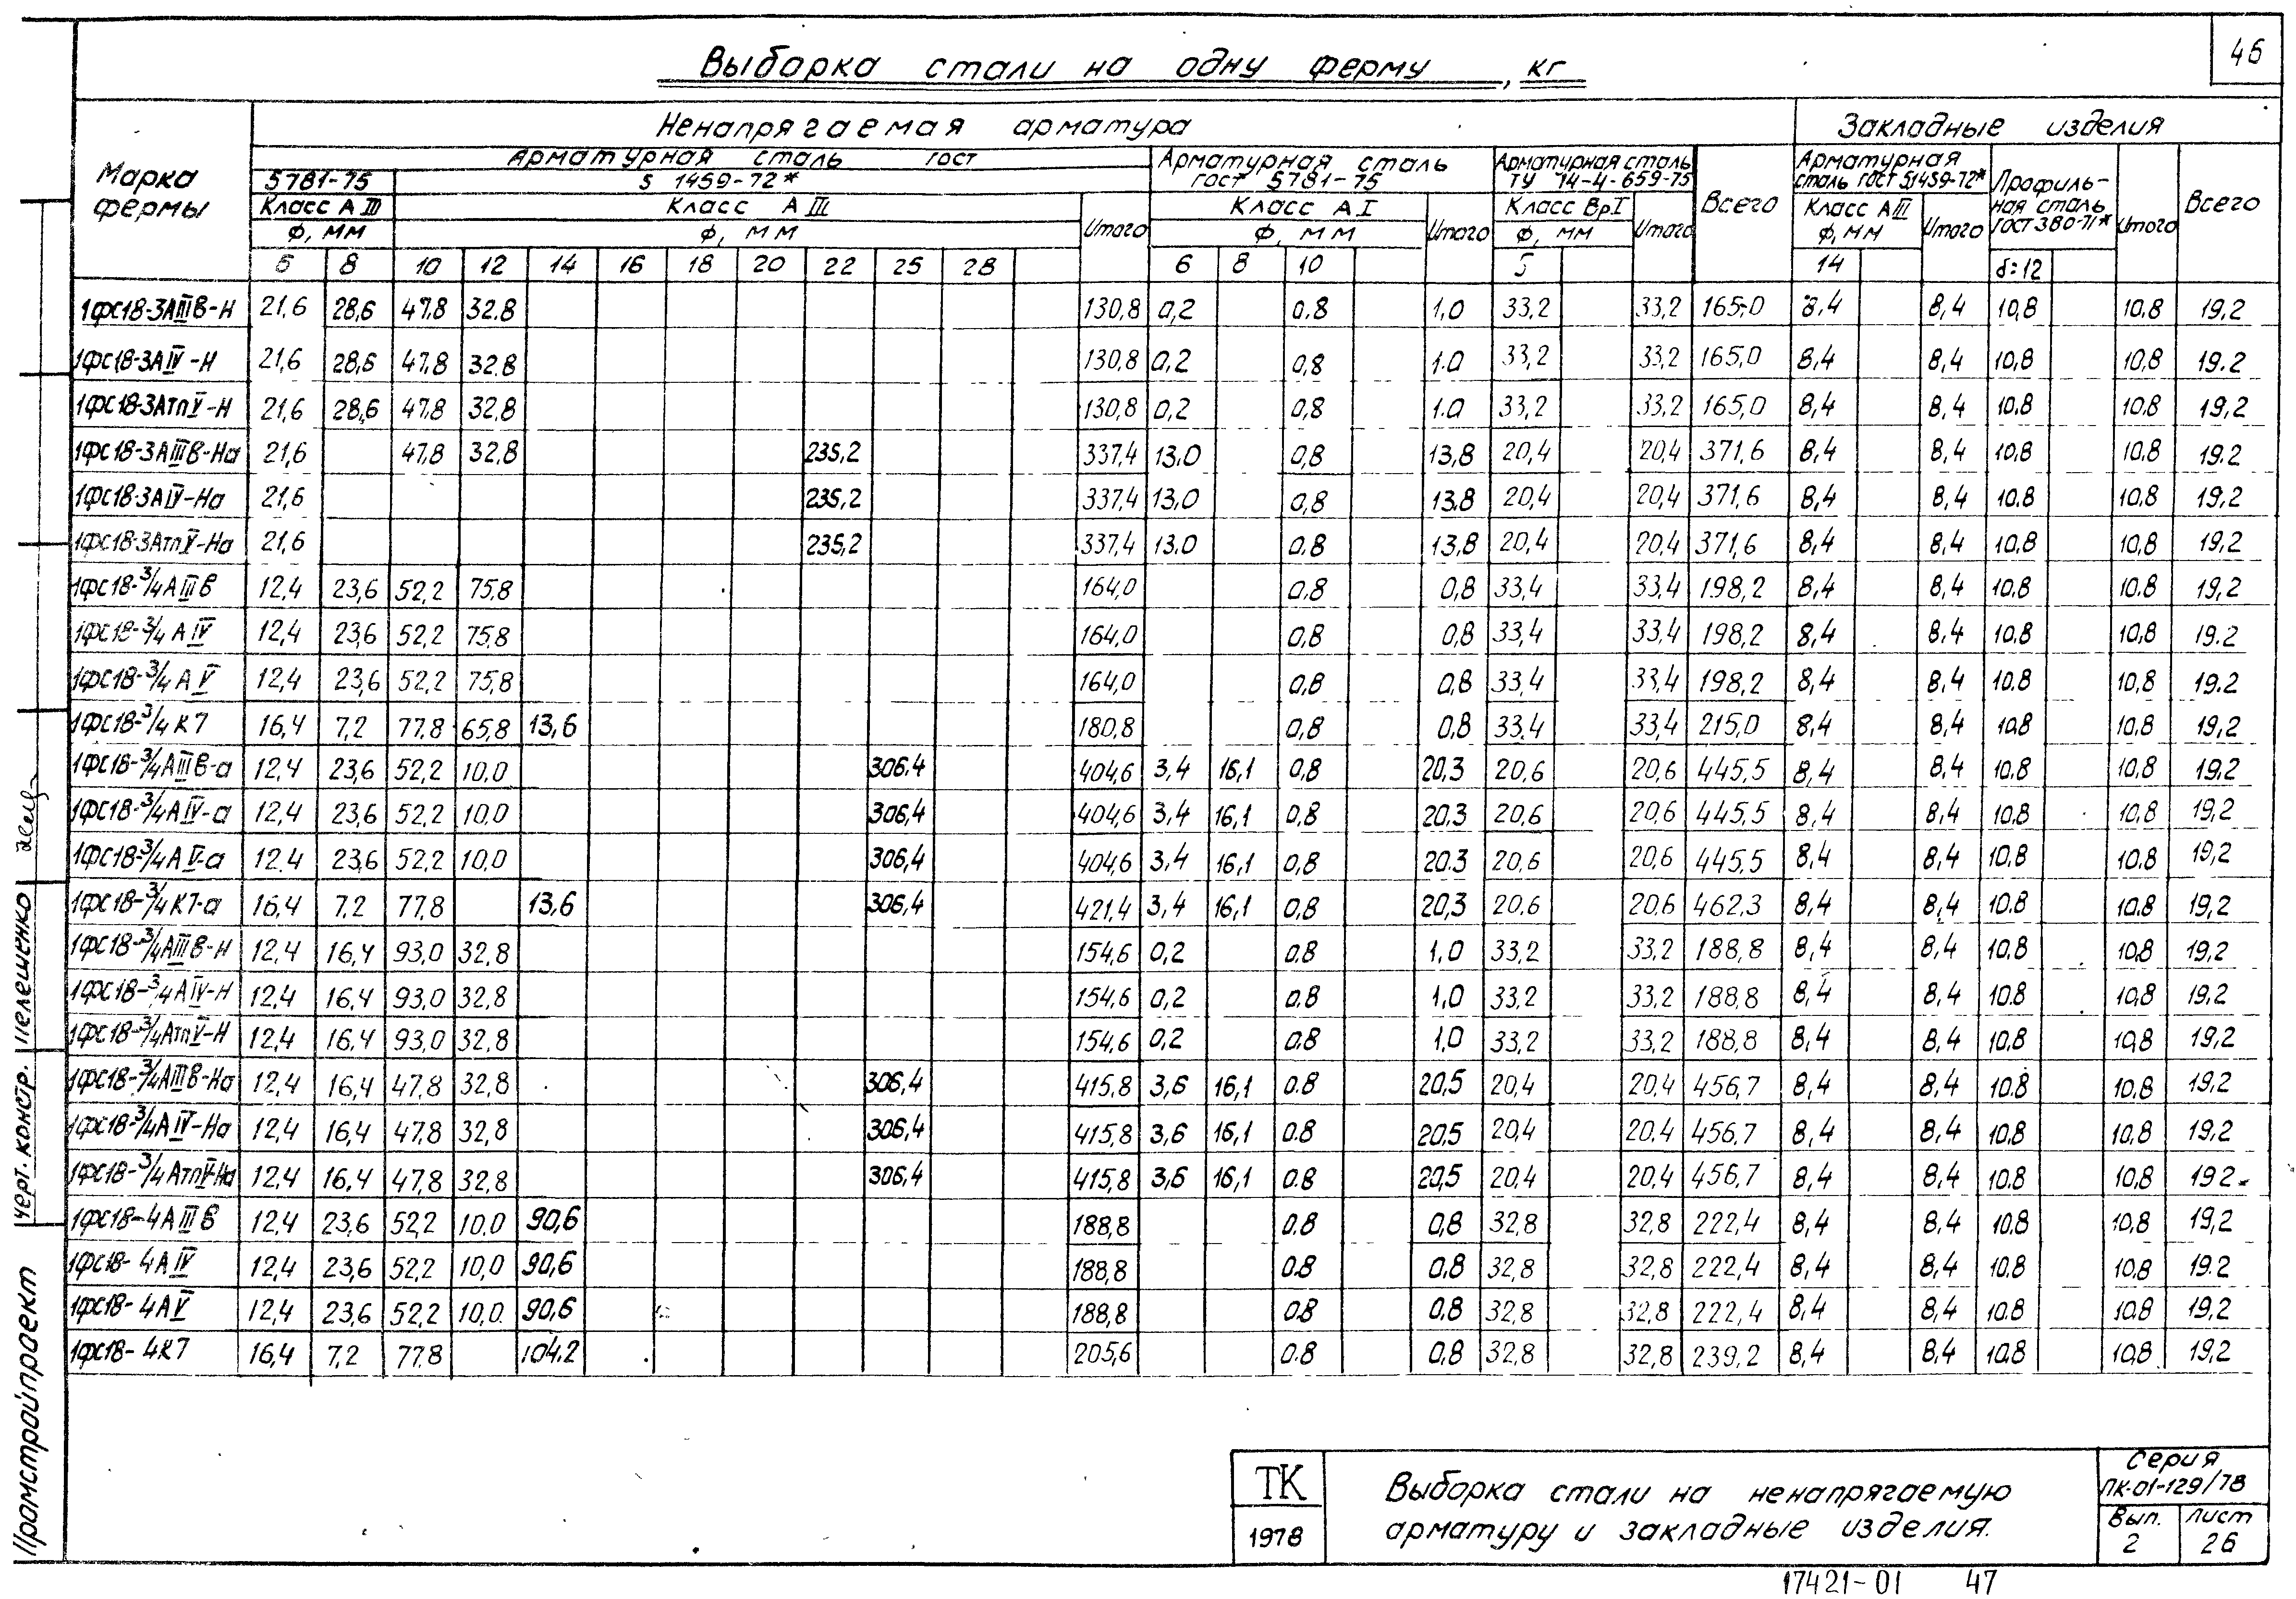 46
Выборка стали на одну ферму, кг
Марка фермы
Ненапрягаемая арматура
Закладные изделия
Арматурная сталь гост
5781-75
5 1459-72*
Класс А III
Класс А III
ф, мм
ф, мм
Итого
Арматурная сталь гост 5781-75
Класс А I
ф, мм
Итого
Арматурная сталь ТУ 14-4-659-75
Класс Вр I
ф, мм
Итого
Всего
Арматурная сталь гост 51459-72*
Класс А III
ф, мм
Итого
Профильная сталь гост 380-71*
Итого
Всего
6 8 10 12 14 16 18 20 22 25 28 6 8 10 5 14 δ=12
1фс18-3АIIIв-Н 21,6 28,6 47,8 32,8 130,8 0,2 0,8 1,0 33,2 33,2 165,0 8,4 8,4 10,8 10,8 19,2
1фс18-3АIV-Н 21,6 28,6 47,8 32,8 130,8 0,2 0,8 1,0 33,2 33,2 165,0 8,4 8,4 10,8 10,8 19,2
1фс18-3АтпV-Н 21,6 28,6 47,8 32,8 130,8 0,2 0,8 1,0 33,2 33,2 165,0 8,4 8,4 10,8 10,8 19,2
1фс18-3АIIIв-На 21,6 47,8 32,8 235,2 337,4 13,0 0,8 13,8 20,4 20,4 371,6 8,4 8,4 10,8 10,8 19,2
1фс18-3АIV-На 21,6 235,2 337,4 13,0 0,8 13,8 20,4 20,4 371,6 8,4 8,4 10,8 10,8 19,2
1фс18-3АтпV-На 21,6 235,2 337,4 13,0 0,8 13,8 20,4 20,4 371,6 8,4 8,4 10,8 10,8 19,2
1фс18-3/4АIIIв 12,4 23,6 52,2 75,8 164,0 0,8 0,8 33,4 33,4 198,2 8,4 8,4 10,8 10,8 19,2
1фс18-3/4АIV 12,4 23,6 52,2 75,8 164,0 0,8 0,8 33,4 33,4 198,2 8,4 8,4 10,8 10,8 19,2
1фс18-3/4АV 12,4 23,6 52,2 75,8 164,0 0,8 0,8 33,4 33,4 198,2 8,4 8,4 10,8 10,8 19,2
1фс18-3/4К7 16,4 7,2 77,8 65,8 13,6 180,8 0,8 0,8 33,4 33,4 215,0 8,4 8,4 10,8 10,8 19,2
1фс18-3/4АIIIв-а 12,4 23,6 52,2 10,0 306,4 404,6 3,4 16,1 0,8 20,3 20,6 20,6 445,5 8,4 8,4 10,8 10,8 19,2
1фс18-3/4АIV-а 12,4 23,6 52,2 10,0 306,4 404,6 3,4 16,1 0,8 20,3 20,6 20,6 445,5 8,4 8,4 10,8 10,8 19,2
1фс18-3/4АV-а 12,4 23,6 52,2 10,0 306,4 404,6 3,4 16,1 0,8 20,3 20,6 20,6 445,5 8,4 8,4 10,8 10,8 19,2
1фс18-3/4К7-а 16,4 7,2 77,8 13,6 306,4 421,4 3,4 16,1 0,8 20,3 20,6 20,6 462,3 8,4 8,4 10,8 10,8 19,2
1фс18-3/4АIIIв-Н 12,4 16,4 93,0 32,8 154,6 0,2 0,8 1,0 33,2 33,2 188,8 8,4 8,4 10,8 10,8 19,2
1фс18-3/4АIV-Н 12,4 16,4 93,0 32,8 154,6 0,2 0,8 1,0 33,2 33,2 188,8 8,4 8,4 10,8 10,8 19,2
1фс18-3/4АтпV-Н 12,4 16,4 93,0 32,8 154,6 0,2 0,8 1,0 33,2 33,2 188,8 8,4 8,4 10,8 10,8 19,2
1фс18-3/4АIIIв-На 12,4 16,4 47,8 32,8 306,4 415,8 3,6 16,1 0,8 20,5 20,4 20,4 456,7 8,4 8,4 10,8 10,8 19,2
1фс18-3/4АIV-На 12,4 16,4 47,8 32,8 306,4 415,8 3,6 16,1 0,8 20,5 20,4 20,4 456,7 8,4 8,4 10,8 10,8 19,2
1фс18-3/4АтпV-На 12,4 16,4 47,8 32,8 306,4 415,8 3,6 16,1 0,8 20,5 20,4 20,4 456,7 8,4 8,4 10,8 10,8 19,2
1фс18-4АIIIв 12,4 23,6 52,2 10,0 90,6 188,8 0,8 0,8 32,8 32,8 222,4 8,4 8,4 10,8 10,8 19,2
1фс18-4АIV 12,4 23,6 52,2 10,0 90,6 188,8 0,8 0,8 32,8 32,8 222,4 8,4 8,4 10,8 10,8 19,2
1фс18-4АV 12,4 23,6 52,2 10,0 90,6 188,8 0,8 0,8 32,8 32,8 222,4 8,4 8,4 10,8 10,8 19,2
1фс18-4К7 16,4 7,2 77,8 104,2 205,6 0,8 0,8 32,8 32,8 239,2 8,4 8,4 10,8 10,8 19,2
Промстройпроект
Черт. констр. Пелешенко
ТК
1978
Выборка стали на ненапрягаемую
арматуру и закладные изделия.
Серия
ПК-01-129/78
Вып. Лист
2 26
17421-01 47